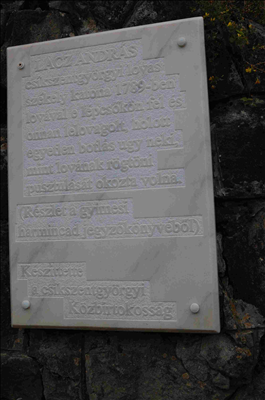 LACZ ANDRÁS
csíkszentgyörgyi lovas
székely katona 1789-ben
lovával e lépcsőkön fel és
onnan lelovagolt, holott
egyetlen botlás úgy neki,
mint lovának rögtöni
pusztulását okozta volna.
(Részlet a gyimesi
harmincad jegyzőkönyvéből)
Készítette
a csíkszentgyörgyi
Közbirtokosság